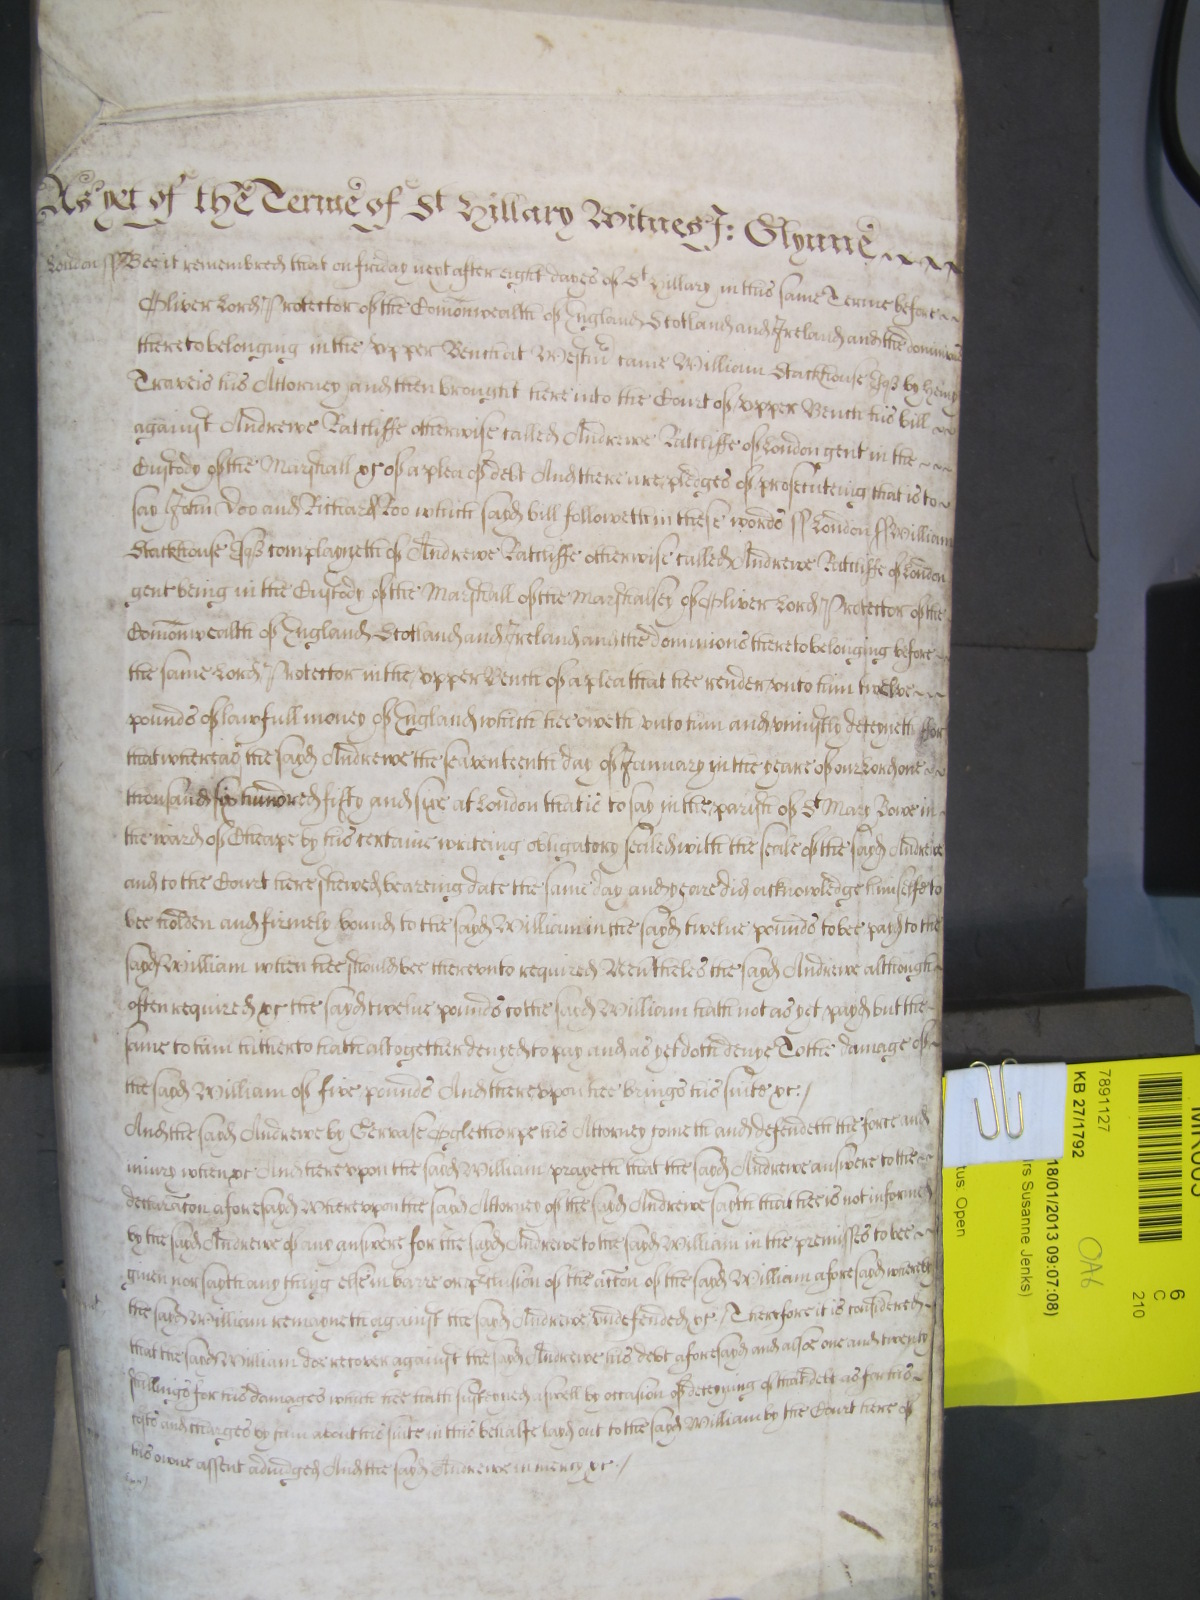 As yet of the Terme of St Hillary Witnes J: Glynne
London ss Bee it remembred that on friday next after eight dayes of St Hillary in this same Terme before
Oliver Lord Protector of the Comonwealth of England Scotland and Ireland and the dominions
thereto belonging in the upper Bench at Westmr came William Stackhouse Esqr by Henry
Traveis his Attorney and then brought here into the Court of upper Bench his bill
against Andrewe Ratcliffe otherwise called Andrewe Ratcliffe of London gent in the
Custody of the Marshall &c of a plea of debt And there are pledges of prosecuteing that is to
say John Doo and Richard Roo which sayd bill followeth in these words ss London ss William
Stackhouse Esqr complayneth of Andrewe Ratcliffe otherwise called Andrewe Ratcliffe of London
gent being in the Custody of the Marshall of the Marshalsey of Oliver Lord Protector of the
Comonwealth of England Scotland and Ireland and the dominions thereto belonging before
the same Lord Protector in the upper Bench of a plea that hee render unto him twelve
pounds of lawfull money of England which hee oweth unto him and uniustly deteyneth ffor
that whereas the sayd Andrewe the seaventeenth day of January in the yeare of our Lord one
thousand six hundred fifty and sixe at London that is to say in the parish of St Mary Bowe in
the ward of Cheape by his certaine writeing obligatory sealed with the seale of the sayd Andrewe
and to the Court here shewed beareing date the same day and yeare did acknowledge himselfe to
bee holden and firmely bound to the sayd William in the sayd twelve pounds to bee payd to the
sayd William when hee should bee thereunto required Neuthelés the sayd Andrewe although
often required &c the sayd twelve pounds to the sayd William hath not as yet payd but the
same to him hitherto hath altogether denyed to pay and as yet doth denye To the damage of
the sayd William of five pounds And thereupon hee brings his suite &c. /
And the sayd Andrewe by Gervase Oglethorpe his Attorney cometh and defendeth the force and
iniury when &c And hereupon the sayd William prayeth that the sayd Andrewe answere to the
declaracon aforesayd Whereupon the sayd Attorney of the sayd Andrewe sayth that hee is not informed
by the sayd Andrewe of any answere for the sayd Andrewe to the sayd William in the premisses to bee
given nor sayth any thing else in barre or p'clusion of the accon of the sayd William aforesayd whereby
the sayd William remayneth against the sayd Andrewe undefended &c. / Therefore it is considered
that the sayd William doe recover against the sayd Andrewe his debt aforesayd and alsoe one and twenty
shillings for his damages which hee hath susteyned aswell by occasion of deteyning of that debt as for his
costs and charges by him about his suite in this behalfe layd out to the sayd William by the Court here of
his owne assent adiudged And the sayd Andrewe in mercy &c. /
7891127
KB 27/1792
18/01/2013 09:07:08)
rs Susanne Jenks)
tus: Open
OA6
6
C
210